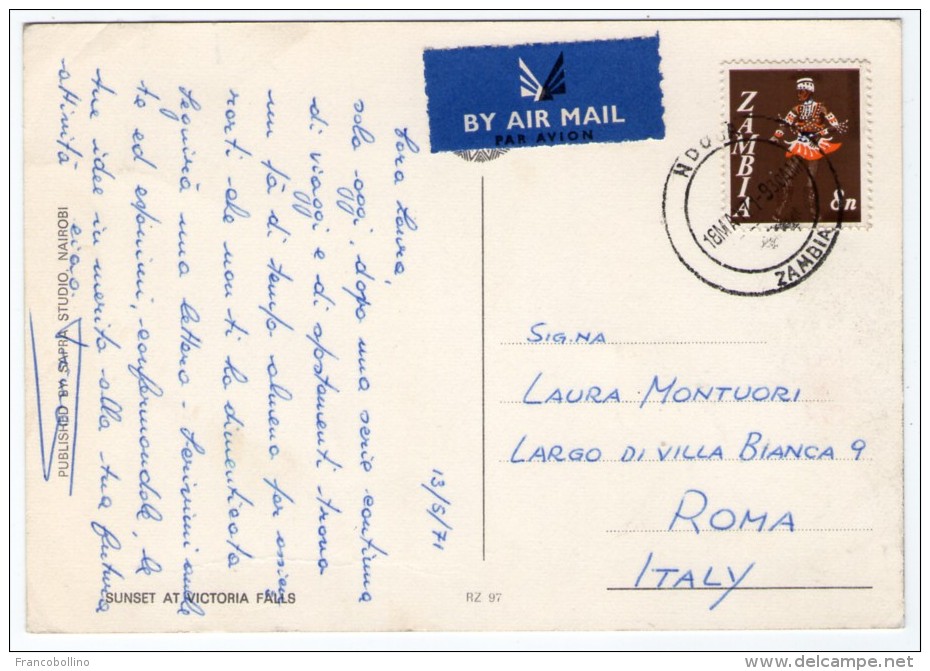 BY AIR MAIL
PAR AVION
ZAMBIA
8n
NDOLA
18MA
ZAMBIA
13/5/71
Cara Laura,
solo oggi, dopo una serie continua
di viaggi e di spostamenti trovo
un pò di tempo almeno per assicu
rarti che non ti ho dimenticata
Seguirà una lettera - Scrivimi anche
te ed esprimi, confermandole, le
tue idee in merito alla tua futura
attività
ciao
PUBLISHED BY SAPRA STUDIO, NAIROBI
SUNSET AT VICTORIA FALLS
RZ 97
SIG.NA
LAURA MONTUORI
LARGO DI VILLA BIANCA 9
ROMA
ITALY
Francobollino
www.delcampe.net